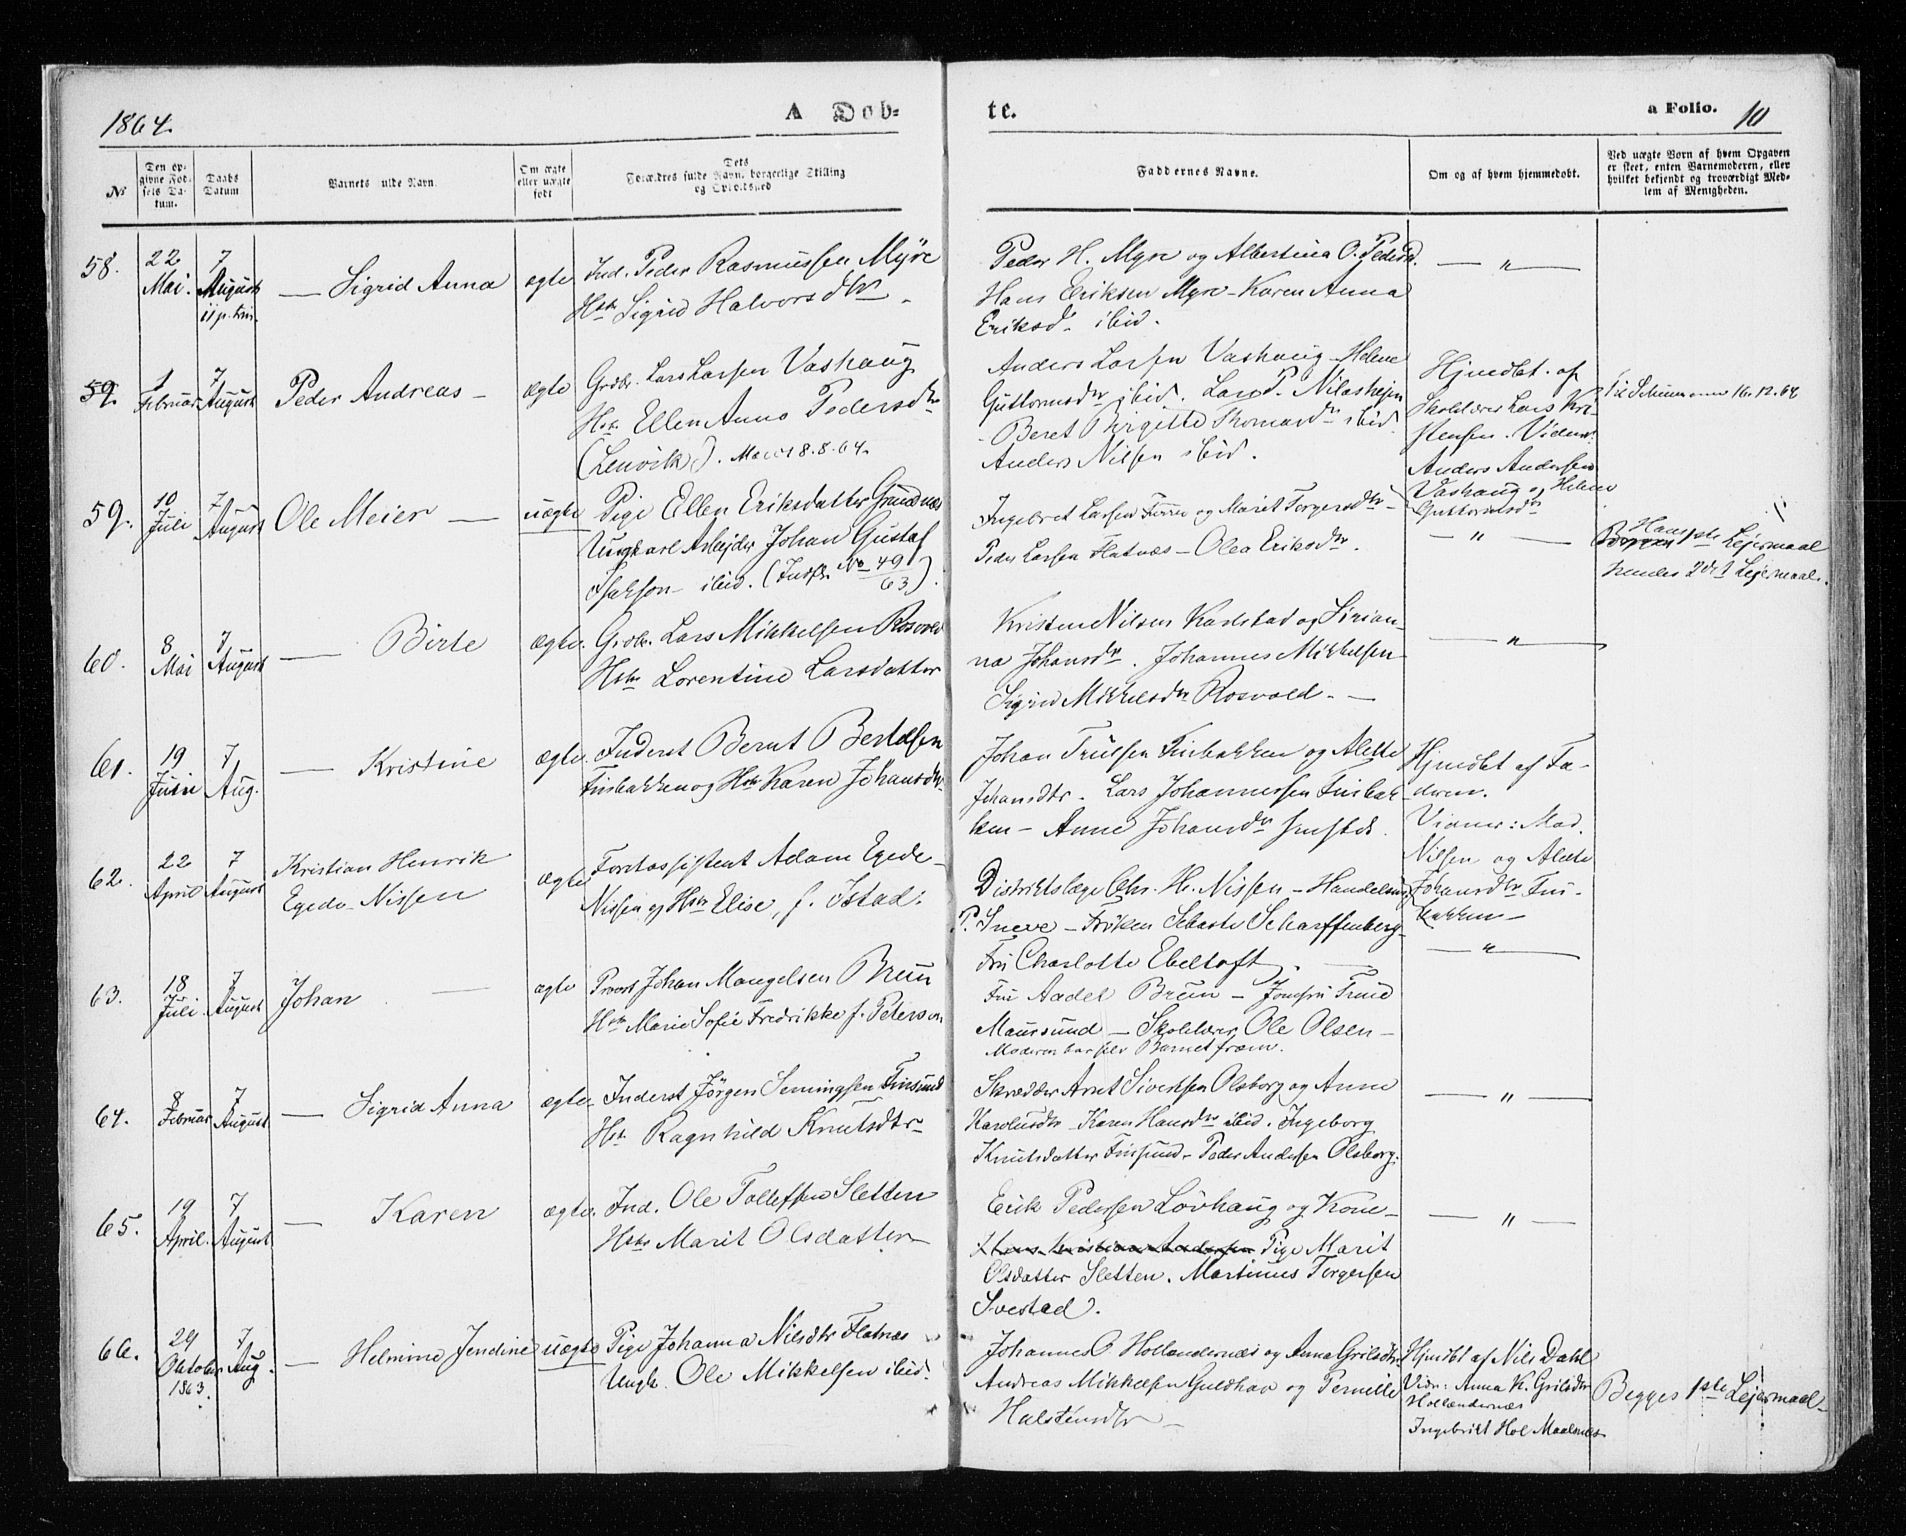 1864.
A Døb-
te.
a Folio. 10
No
Den opgivne Fødsels Datum.
Daabs Datum
Barnets fulde Navn.
Om ægte eller uægte født
Dets Forældres fulde Navn, borgerlige Stilling og Opholdssted
Faddernes Navne.
Om og af hvem hjemmedøbt.
Ved uægte Børn af hvem Opgaven er skeet, enten Barnemoderen, eller hvilket bekjendt og troværdigt Medlem af Menigheden.
58.
22 Mai.
7 August
11 p. Trin.
— Sigrid Anna
ægte
Ind. Peder Rasmussen Myre
Hstr Sigrid Halvorsdtr
Peder H. Myre og Albertina O. Pedersd.
Hans Eriksen Myre - Karen Anna
Eriksd. ibid.
— " —
59.
1 Februar
7 August
Peder Andreas —
ægte
Grdbr. Lars Larsen Vashaug
Hstr Ellen Anna Pedersdtr
(Lenvik).
8.8.64.
Anders Larsen Vashaug - Helene
Guttormsdtr ibid. Lars P.
- Beret Birgitte Thomasdtr ibid
Anders Nilsen ibid.
Hjmdbt. af
Skolelærer Lars Kri-
stensen. Vidner:
Anders Andersen
Vashaug og Helene
Guttormsdtr
16.12.64
59.
10 Juli
7 August
Ole Meier —
uægte
Pige Ellen Eriksdatter Grundnæs
Ungkarl Arbejder Johan Gustaf
Isakson - ibid. (Indfl. No 49/63).
Ingebret Larsen og Marit Torgersdtr -
Peder Larsen Flatnæs - Olea Eriksdtr.
— " —
Hans 1ste Lejermaal
hendes 2det Lejermaal.
60.
8 Mai
7 August
— Birte
ægte.
Grdbr. Lars Mikkelsen Rosvold
Hstr Lorentine Larsdatter
Kristen Nilsen Karlstad og Sirian-
na Johansdtr. Johannes Mikkelsen
Sigrid Mikkelsdtr Rosvold. —
— " —
61.
19 Juni
7 Aug.
— Kristine
ægte.
Inderst Bernt Bertelsen
Finbakken og Hstr Karen Johansdtr
Johan Trulsen Finbakken og Alette
Johansdtr. Lars Johannessen Finbak-
ken - Anne Johansdtr
Hjmdbt af Fa-
deren.
Vidner: Mad.
Nilsen og Alette
Johansdtr Fin-
bakken —
62.
22 April
7 August
Kristian Henrik
Egede-Nissen
ægte
Forstassistent Adam Egede-
Nissen og Hstr Elise, f. Ystad.
Distriktslæge Chr. H. Nissen - Handelsm
P. Sneve - Frøken Sebaste Scharffenberg
Fru Charlotte Ebeltoft.
— " —
63.
18 Juli
7 August
Johan —
ægte
Provst Johan Mangelsen Brun
Hstr Marie Sofie Fredrikke f. Peterson
Fru Aadel Brun - Jomfru Trine
Maursund - Skolelærer Ole Olsen -
Moderen bar selv Barnet frem.
64.
8 Februar
7 August
— Sigrid Anna
ægte
Inderst Jørgen Simingsen Finsund
Hstr Ragnhild Knutsdtr
Skrædder Arnt Sivertsen Olsborg og Anne
Karolusdtr - Karen Hansdtr ibid. Ingeborg
Knutsdatter Finsund - Peder Andersen Olsborg.
— " —
65.
19 April.
7 August
— Karen
ægte.
Ind. Ole Tollefsen Sletten
Hstr Marit Olsdatter
Erik Pedersen Løvhaug og Kone -
Hans Kristian Andersen Pige Marit
Olsdatter Sletten. Martinus Torgersen
Svestad.
— " —
66.
29 Oktober 1863.
7 Aug.
— Helmine Jendine
uægte
Pige Johanna Nilsdtr Flatnæs
Ungk. Ole Mikkelsen ibid.
Johannes O Hollændernæs og Anna Grilsdtr
Andreas Mikkelsen Guldhav og Pernille
Halstensdtr -
Hjmdbt af Nils Dahl
Vidn: Anna K. Grilsdtr
Hollændernæs
Ingebrikt Hol Maalsnes
Begges 1ste Lejermaal